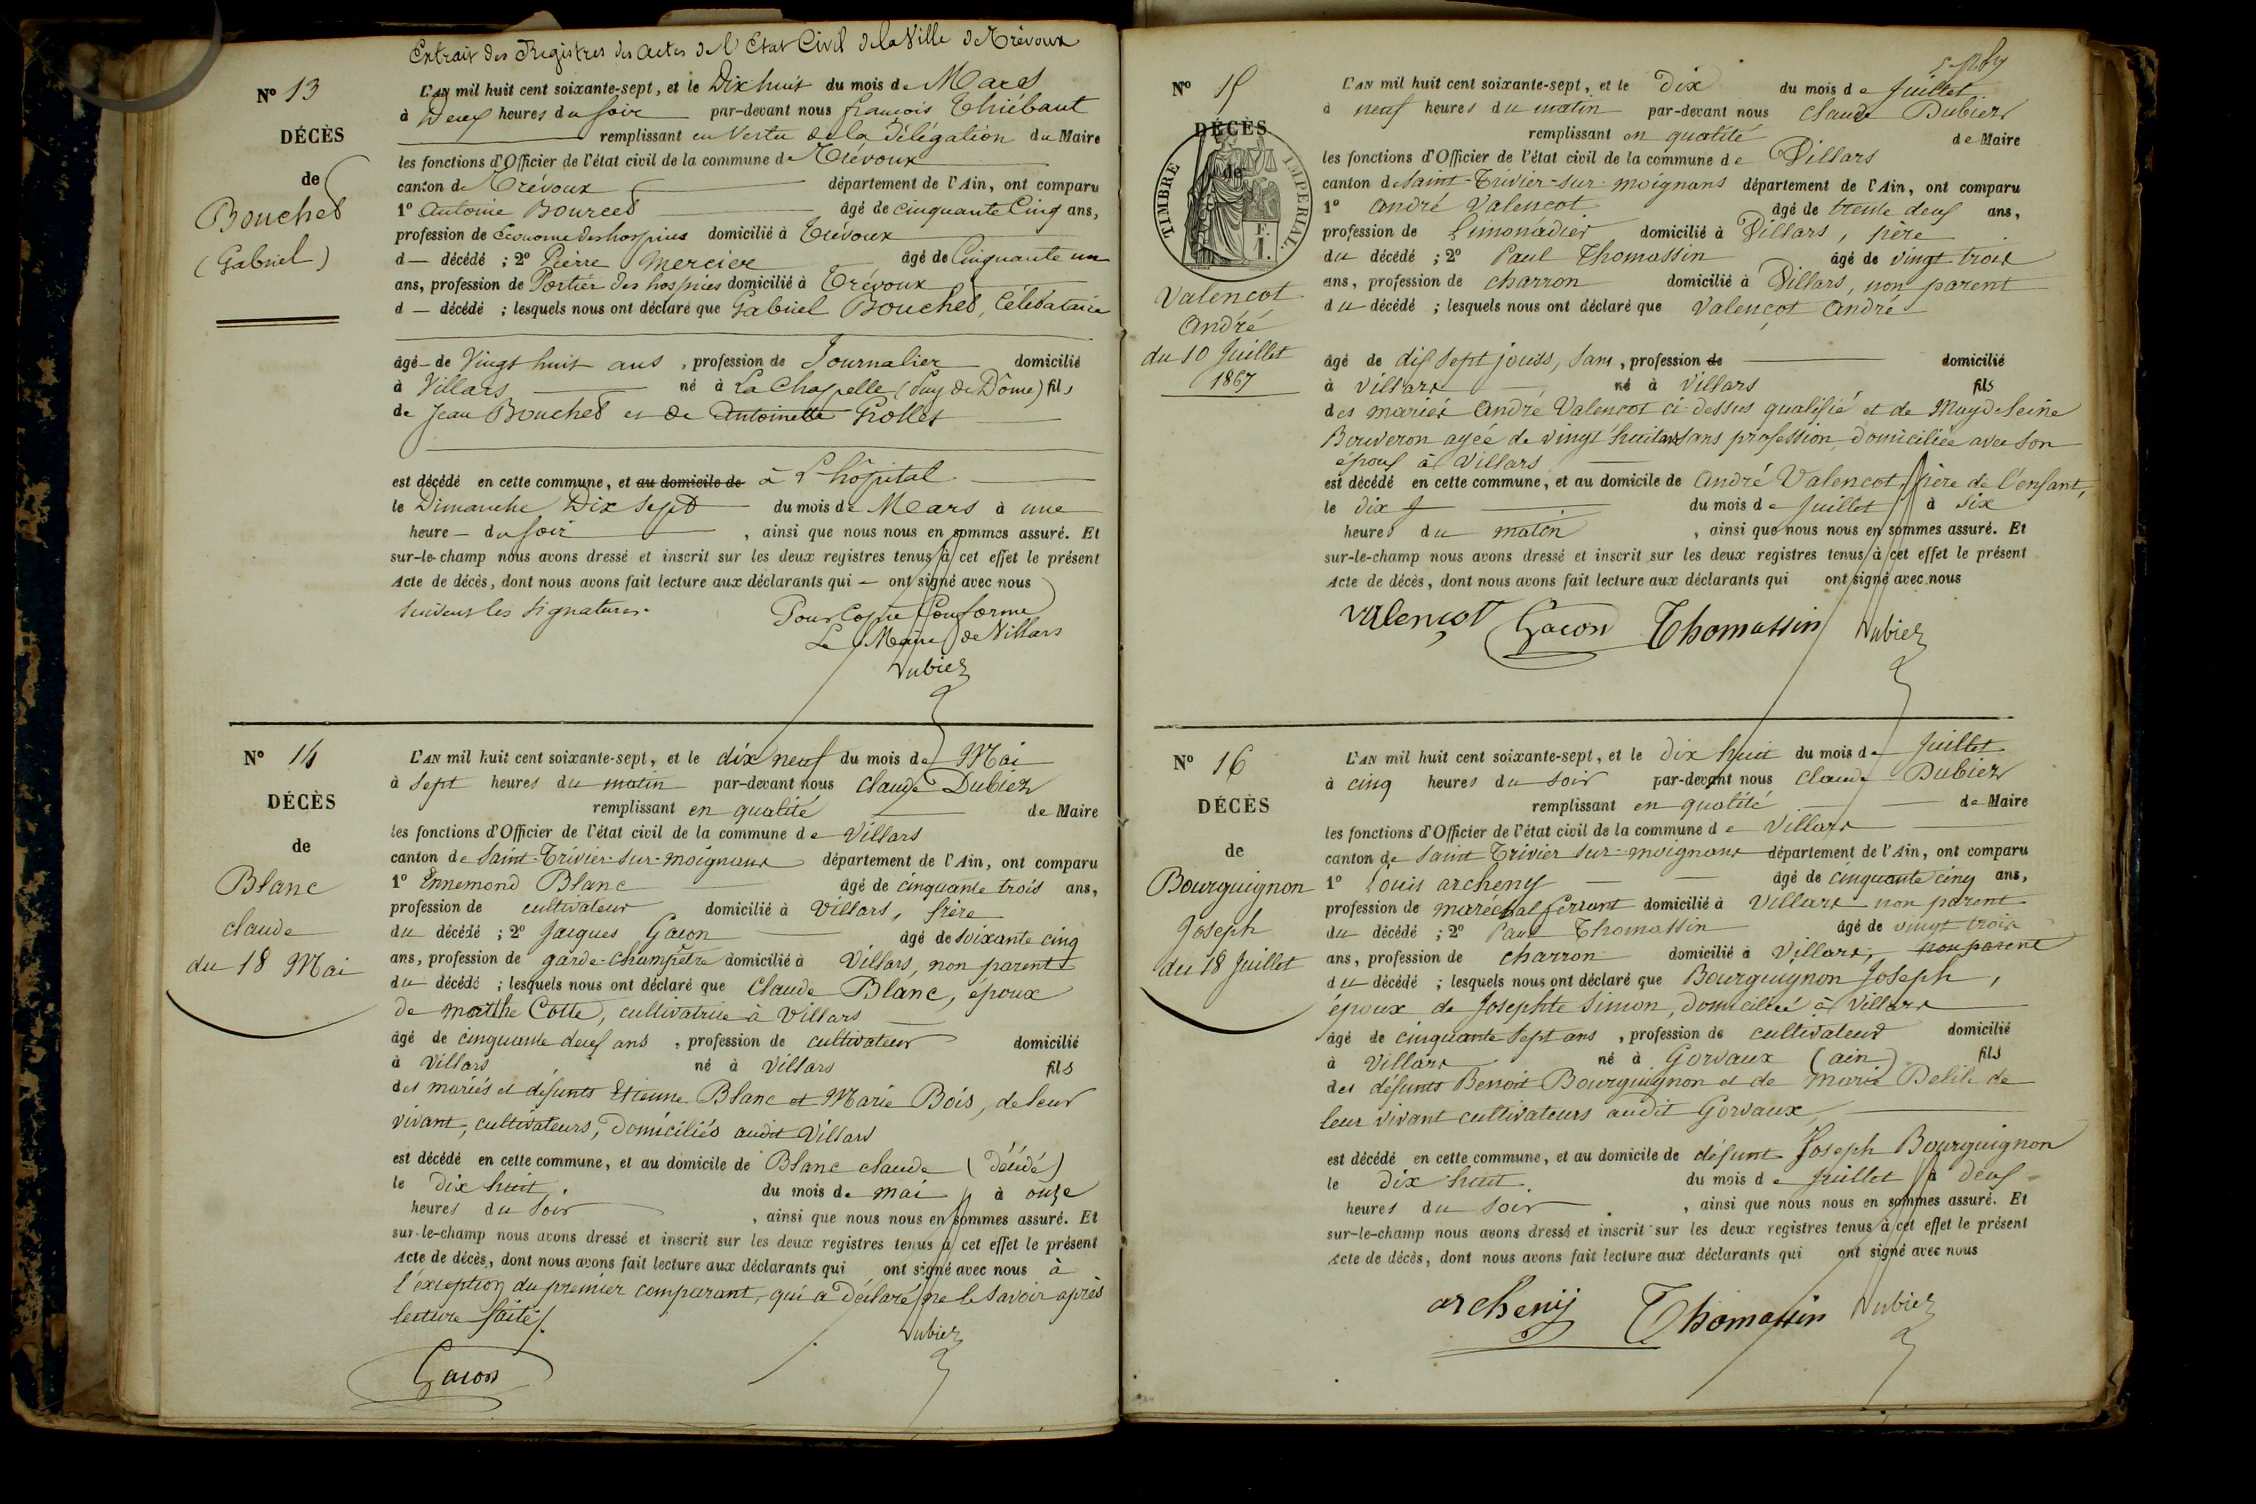 Extrait des Registres des actes de l'Etat Civil de la Ville de Trévoux
Nº 13
DÉCÈS
de
Bouchet
(Gabriel)
L'AN mil huit cent soixante-sept, et le Dix huit du mois de Mars
à Deux heures du soir par-devant nous françois Thiébaut
remplissant en Vertu de la délégation du Maire
les fonctions d'Officier de l'état civil de la commune de Trévoux
canton de Trévoux département de l'Ain, ont comparu
1º Antoine Bourcet âgé de cinquante Cinq ans,
profession de Econome des hospices domicilié à Trévoux
d — décédé ; 2º Pierre Mercier âgé de Cinquante un
ans, profession de Portier des hospices domicilié à Trévoux
d — décédé ; lesquels nous ont déclaré que Gabriel Bouchet, Célibataire
âgé de Vingt huit ans, profession de Journalier domicilié
à Villars né à La Chapelle (Puy de Dôme) fils
de Jean Bouchet et de Antoinette Grollet
est décédé en cette commune, et au domicile de à L'hôpital
le Dimanche Dix Sept du mois de Mars à une
heure du soir, ainsi que nous nous en sommes assuré. Et
sur-le-champ nous avons dressé et inscrit sur les deux registres tenus à cet effet le présent
Acte de décès, dont nous avons fait lecture aux déclarants qui — ont signé avec nous
Suivent les signatures.
Pour Copie Conforme
Le Maire de Villars
Dubiez
Nº 14
DÉCÈS
de
Blanc
claude
du 18 Mai
L'AN mil huit cent soixante-sept, et le dix neuf du mois de Mai
à sept heures du matin par-devant nous Claude Dubiez
remplissant en qualité de Maire
les fonctions d'Officier de l'état civil de la commune de Villars
canton de Saint-Trivier-sur-moignans département de l'Ain, ont comparu
1º Ennemond Blanc âgé de cinquante trois ans,
profession de cultivateur domicilié à Villars, frère
du décédé ; 2º Jacques Gacon âgé de soixante cinq
ans, profession de garde-champêtre domicilié à Villars, non parent
du décédé ; lesquels nous ont déclaré que Claude Blanc, époux
de marthe Cotte, cultivatrice à Villars
âgé de cinquante deux ans, profession de cultivateur domicilié
à Villars né à Villars fils
des mariés et défunts Etienne Blanc et Marie Bois, de leur
vivant, cultivateurs, domiciliés audit Villars
est décédé en cette commune, et au domicile de Blanc claude (décédé)
le dix huit du mois de mai à onze
heures du soir, ainsi que nous nous en sommes assuré. Et
sur-le-champ nous avons dressé et inscrit sur les deux registres tenus à cet effet le présent
Acte de décès, dont nous avons fait lecture aux déclarants qui ont signé avec nous à
l'exception du premier comparant, qui a déclaré ne le savoir après
lecture faite.
Dubiez
Gacon
Nº 15
DÉCÈS
de
TIMBRE IMPERIAL.
1 F.
Valençot
André
du 10 Juillet
1867
L'AN mil huit cent soixante-sept, et le dix du mois de Juillet
à neuf heures du matin par-devant nous Claude Dubiez
remplissant en qualité de Maire
les fonctions d'Officier de l'état civil de la commune de Villars
canton de Saint-Trivier-sur-moignans département de l'Ain, ont comparu
1º André Valencot âgé de trente deux ans,
profession de limonadier domicilié à Villars, père
du décédé ; 2º Paul Thomassin âgé de vingt trois
ans, profession de charron domicilié à Villars, non parent
du décédé ; lesquels nous ont déclaré que Valençot André
âgé de dix sept jours, sans, profession de domicilié
à Villars né à Villars fils
des mariés André Valencot ci-dessus qualifié et de Magdeleine
Bouveron agée de vingt huit ans sans profession, domiciliée avec son
époux à Villars
est décédé en cette commune, et au domicile de André Valencot, père de l'enfant,
le dix du mois de Juillet à six
heures du matin, ainsi que nous nous en sommes assuré. Et
sur-le-champ nous avons dressé et inscrit sur les deux registres tenus à cet effet le présent
Acte de décès, dont nous avons fait lecture aux déclarants qui ont signé avec nous
Valençot Gacon Thomassin Dubiez
Nº 16
DÉCÈS
de
Bourguignon
Joseph
du 18 Juillet
L'AN mil huit cent soixante-sept, et le dix huit du mois de Juillet
à cinq heures du soir par-devant nous Claude Dubiez
remplissant en qualité de Maire
les fonctions d'Officier de l'état civil de la commune de Villars
canton de Saint Trivier sur-moignans département de l'Ain, ont comparu
1º Louis archeny âgé de cinquante cinq ans,
profession de maréchal ferrant domicilié à Villars non parent
du décédé ; 2º Paul Thomassin âgé de vingt trois
ans, profession de charron domicilié à Villars, non parent
du décédé ; lesquels nous ont déclaré que Bourguignon Joseph,
époux de Josephte Simon, domiciliée à Villars
âgé de cinquante sept ans, profession de cultivateur domicilié
à Villars né à Gorvaux (ain) fils
des défunts Benoit Bourguignon et de Marie Delile de
leur vivant cultivateurs audit Gorvaux
est décédé en cette commune, et au domicile de défunt Joseph Bourguignon
le dix huit du mois de Juillet à deux
heures du soir, ainsi que nous nous en sommes assuré. Et
sur-le-champ nous avons dressé et inscrit sur les deux registres tenus à cet effet le présent
Acte de décès, dont nous avons fait lecture aux déclarants qui ont signé avec nous
archeny Thomassin Dubiez